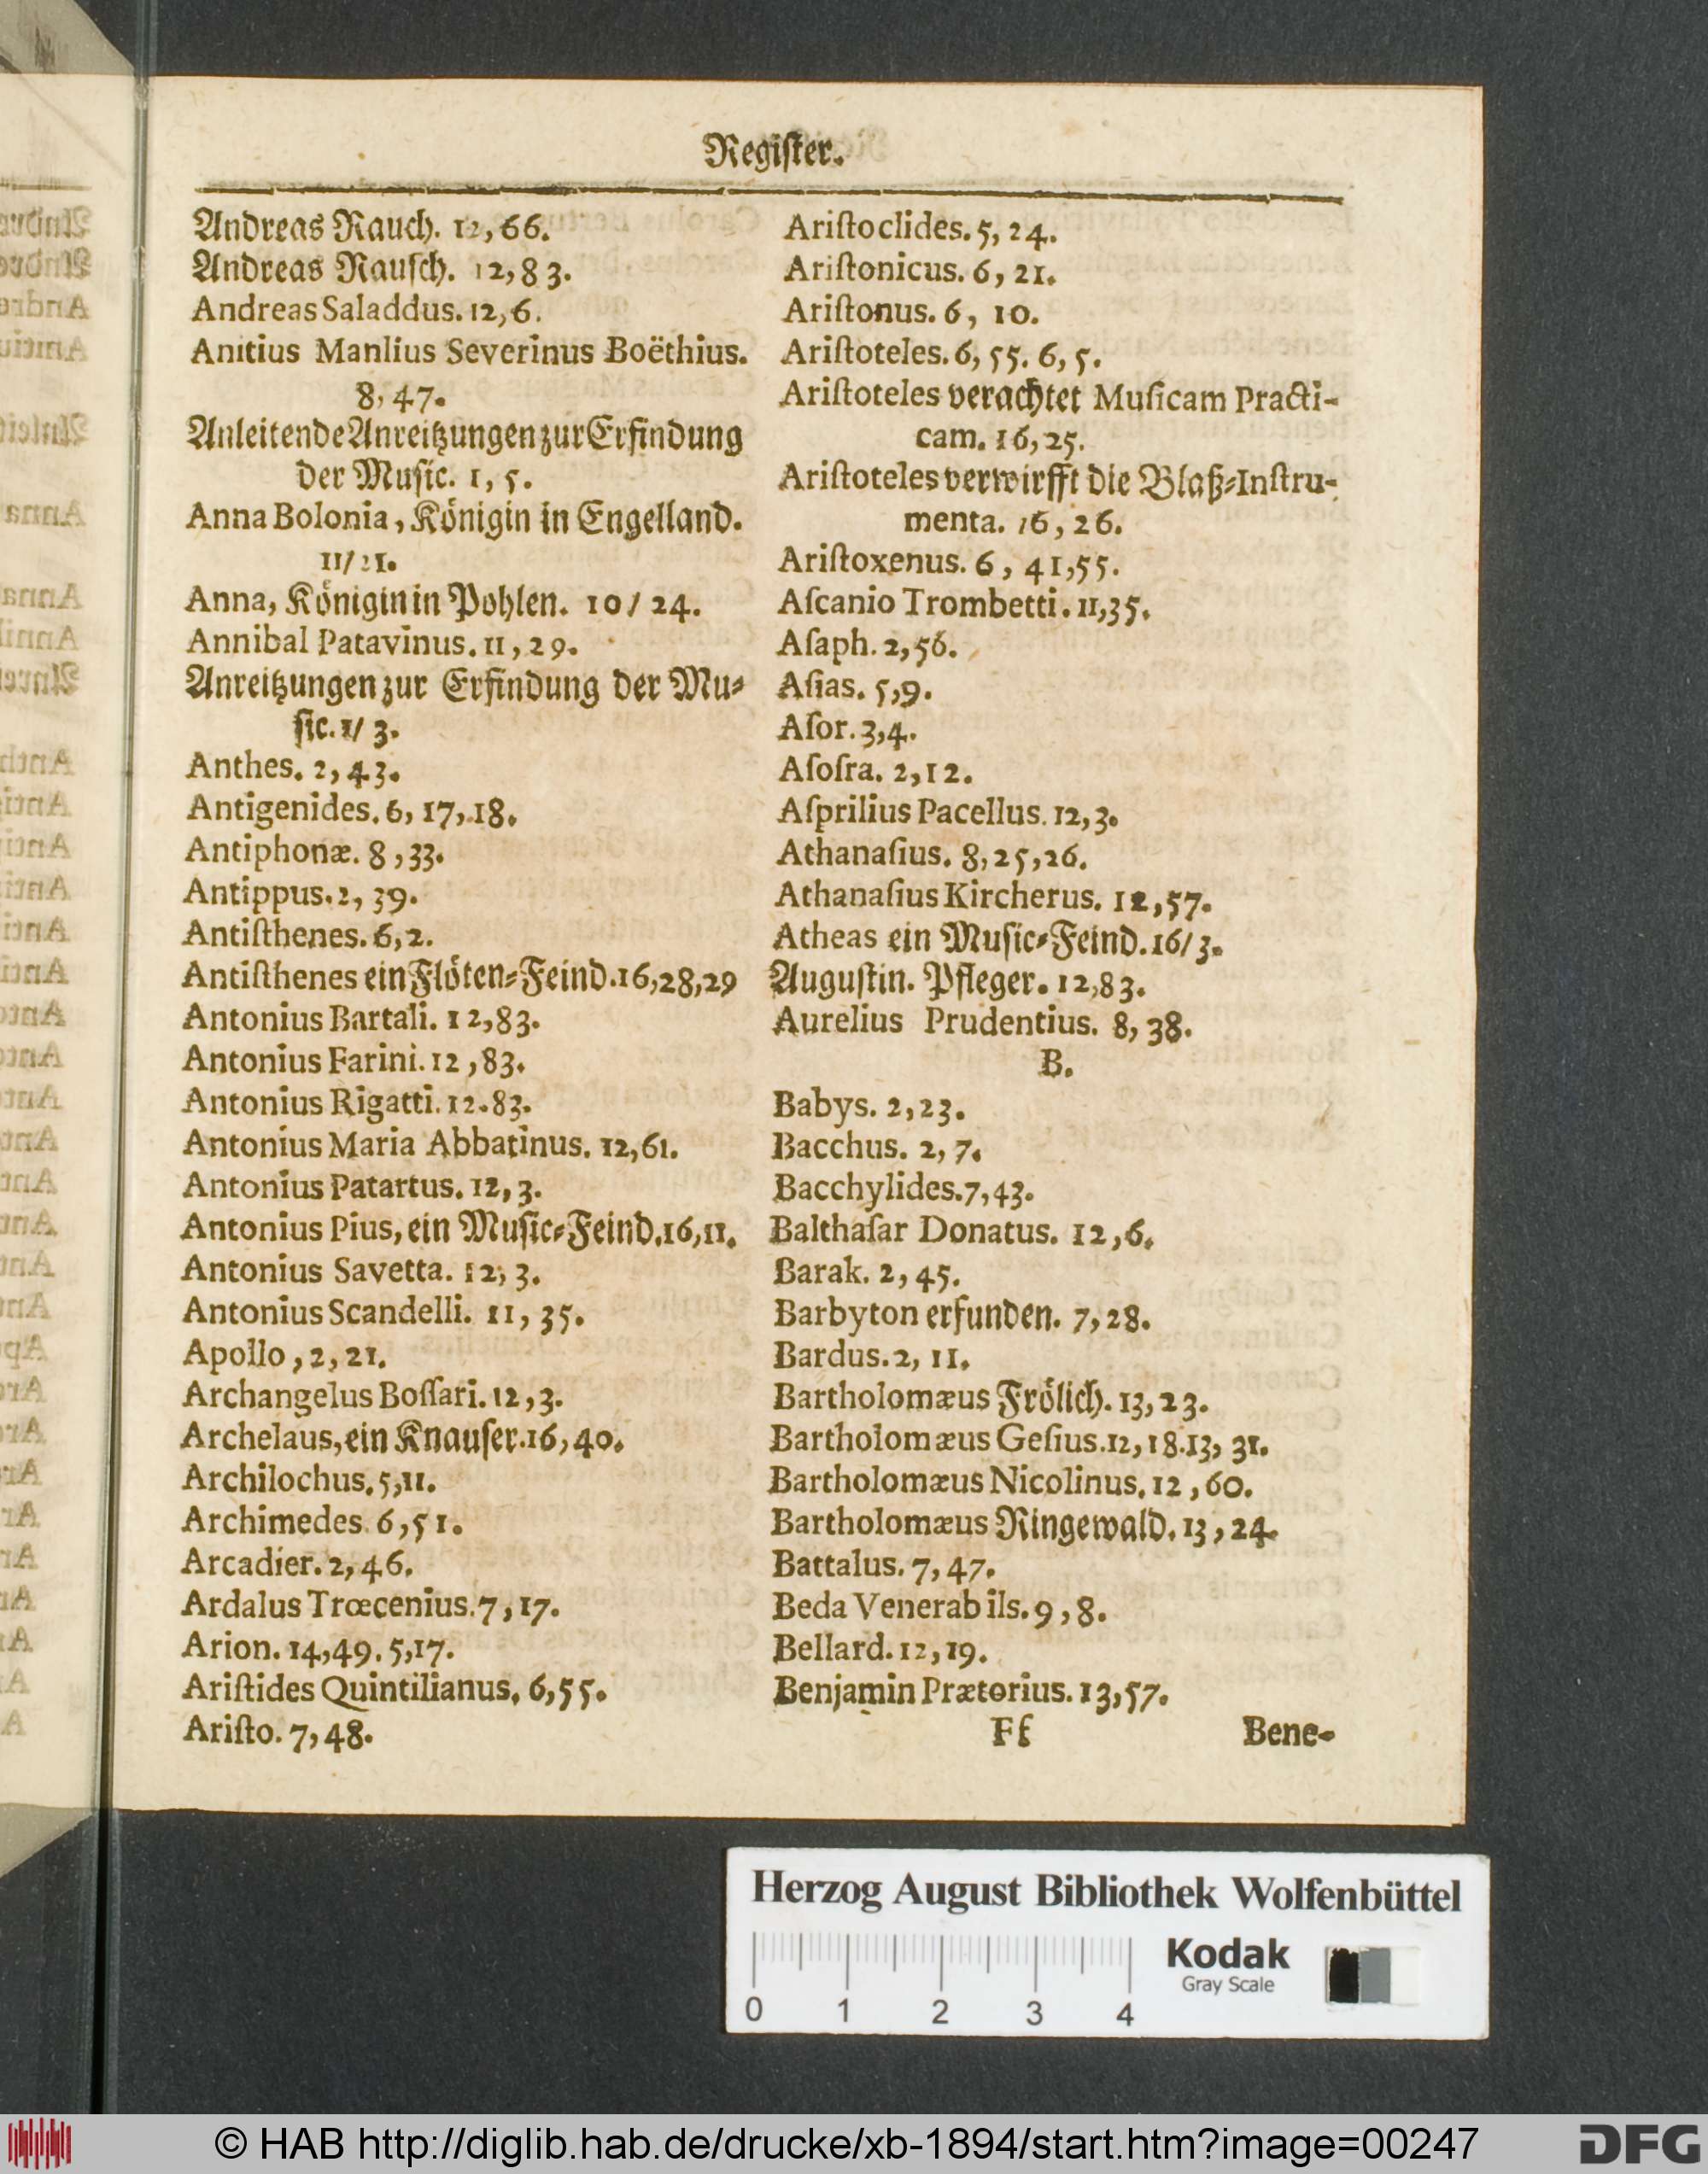 Regiſter.
Andreas Rauch. 12, 66.
Andreas Rauſch. 12, 83.
Andreas Saladdus. 12, 6.
Anitius Manlius Severinus Boëthius.
8, 47.
Anleitende Anreitzungen zur Erfindung
der Muſic. 1, 5.
Anna Bolonia, Königin in Engelland.
11/ 21.
Anna, Königin in Pohlen. 10 / 24.
Annibal Patavinus. 11, 29.
Anreitzungen zur Erfindung der Mu⸗
ſic. 1/ 3.
Anthes. 2, 43.
Antigenides. 6, 17, 18.
Antiphonæ. 8, 33.
Antippus. 2, 39.
Antiſthenes. 6, 2.
Antiſthenes ein Flöten⸗Feind. 16, 28, 29
Antonius Bartali. 12, 83.
Antonius Farini. 12, 83.
Antonius Rigatti. 12. 83.
Antonius Maria Abbatinus. 12, 61.
Antonius Patartus. 12, 3.
Antonius Pius, ein Muſic⸗Feind. 16, 11.
Antonius Savetta. 12, 3.
Antonius Scandelli. 11, 35.
Apollo, 2, 21.
Archangelus Boſſari. 12, 3.
Archelaus, ein Knauſer. 16, 40.
Archilochus. 5, 11.
Archimedes. 6, 51.
Arcadier. 2, 46.
Ardalus Trœcenius. 7, 17.
Arion. 14, 49. 5, 17.
Ariſtides Quintilianus, 6, 55.
Ariſto. 7, 48.
Ariſtoclides. 5, 24.
Ariſtonicus. 6, 21.
Ariſtonus. 6, 10.
Ariſtoteles. 6, 55. 6, 5.
Ariſtoteles verachtet Muſicam Practi-
cam. 16, 25.
Ariſtoteles verwirfft die Blaß⸗Inſtru-
menta. 16, 26.
Ariſtoxenus. 6, 41, 55.
Aſcanio Trombetti. 11, 35.
Aſaph. 2, 56.
Aſias. 5, 9.
Aſor. 3, 4.
Aſoſra. 2, 12.
Aſprilius Pacellus. 12, 3.
Athanaſius. 8, 25, 26.
Athanaſius Kircherus. 12, 57.
Atheas ein Muſic⸗Feind. 16/ 3.
Auguſtin. Pfleger. 12, 83.
Aurelius Prudentius. 8, 38.
B.
Babys. 2, 23.
Bacchus. 2, 7.
Bacchylides. 7, 43.
Balthaſar Donatus. 12, 6.
Barak. 2, 45.
Barbyton erfunden. 7, 28.
Bardus. 2, 11.
Bartholomæus Frölich. 13, 23.
Bartholomæus Geſius. 12, 18. 13, 31.
Bartholomæus Nicolinus. 12, 60.
Bartholomæus Ringewald. 13, 24.
Battalus. 7, 47.
Beda Venerab ils. 9, 8.
Bellard. 12, 19.
Benjamin Prætorius. 13, 57.
Ff Bene-
Herzog August Bibliothek Wolfenbüttel
Kodak
Gray Scale
0 1 2 3 4
© HAB http://diglib.hab.de/drucke/xb-1894/start.htm?image=00247
DFG